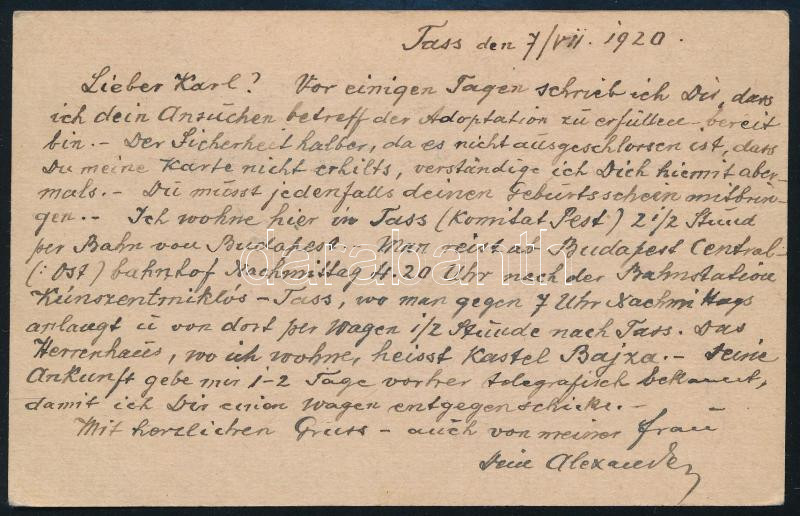 Tass den 7/VII. 1920.
Lieber Karl! Vor einigen Tagen schrieb ich Dir, dass
ich dein Ansuchen betreff der Adoptation zu erfüllen bereit
bin.- Der Sicherheit halber, da es nicht ausgeschlossen ist, dass
Du meine Karte nicht erhilts, verständige ich Dich hiermit aber-
mals.- Du musst jedenfalls deinen Geburtsschein mitbrin-
gen.- Ich wohne hier in Tass (Komitat Pest) 2 1/2 Stund
per Bahn von Budapest.- Man reist ab Budapest Central-
(: Ost) bahnhof Nachmittag 4.20 Uhr nach der Bahnstation
Kunszentmiklós - Tass, wo man gegen 7 Uhr Nachmittags
anlangt u von dort per Wagen 1/2 Stunde nach Tass. Das
Herrenhaus, wo ich wohne, heisst Kastel Bajza.- Deine
Ankunft gebe mir 1-2 Tage vorher telegrafisch bekannt,
damit ich Dir einen Wagen entgegenschicke.-
Mit herzlichen Gruss - auch von meiner Frau
Dein Alexander
darabanth